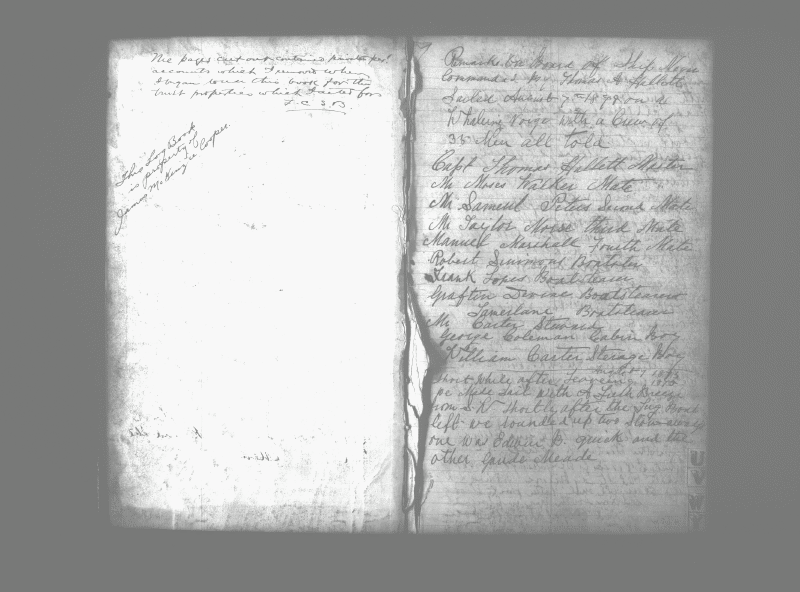 The pages cut out contained
accounts which I removed when
I began to use this book for the
trust properties which I acted for
F. C. S. B.
This Log Book
is property of
James McKenzie Cooper.
Remarks on Board of Ship Morse
Commanded by Thomas H. Hallett
Sailed August 7th on a
Whaling Voige with a Crew of
35 Men all told
Capt Thomas Hallett Master
Mr Moses Walker Mate
Mr Samuel Peters Second Mate
Mr Taylor Morse third Mate
Manuel Marshall Fourth Mate
Robert Simmons Boatsteerer
Frank Lopes Boatsteerer
Grafton Devine Boatsteerer
Tamerlane Boatsteerer
Mr Carter Steward
George Coleman Cabin Boy
William Carter Sterage Boy
Short while after
we Made Sail with A Fresh Breeze
from S.W. Shortly after the Tug Boat
left we rounded up two Stowaways
one was Edwin D. quick and the
other Meade
U V W